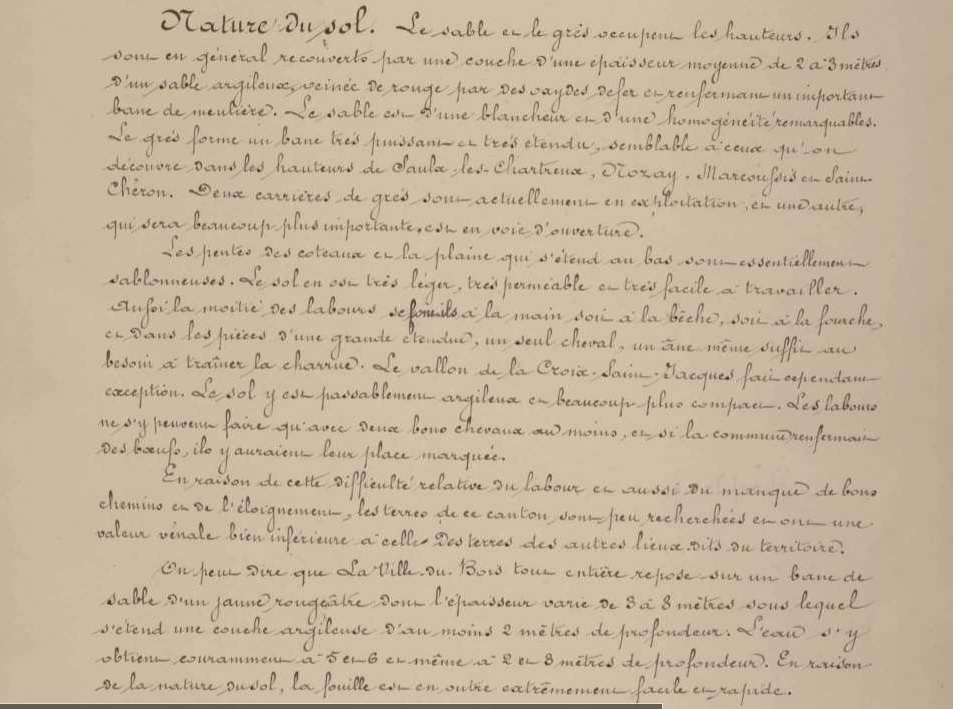 Nature du sol. Le sable et le grès occupent les hauteurs. Ils
sont en général recouverts par une couche d'une épaisseur moyenne de 2 à 3 mètres
d'un sable argileux, veinée de rouge par des oxydes de fer et renfermant un important
banc de meulière. Le sable est d'une blancheur et d'une homogénéité remarquables.
Le grès forme un banc très puissant et très étendu, semblable à ceux qu'on
découvre dans les hauteurs de Saulx-les-Chartreux, Nozay, Marcoussis et Saint-
Chéron. Deux carrières de grès sont actuellement en exploitation, et une autre,
qui sera beaucoup plus importante, est en voie d'ouverture.
Les pentes des coteaux et la plaine qui s'étend au bas sont essentiellement
sablonneuses. Le sol en est très léger, très perméable et très facile à travailler.
Aussi la moitié des labours se font-ils à la main soit à la bêche, soit à la fourche,
et dans les pièces d'une grande étendue, un seul cheval, un âne même suffit au
besoin à traîner la charrue. Le vallon de la Croix-Saint-Jacques fait cependant
exception. Le sol y est passablement argileux et beaucoup plus compact. Les labours
ne s'y peuvent faire qu'avec deux bons chevaux au moins, et si la commune renfermait
des bœufs, ils y auraient leur place marquée.
En raison de cette difficulté relative du labour et aussi du manque de bons
chemins et de l'éloignement, les terres de ce canton sont peu recherchées et ont une
valeur vénale bien inférieure à celle des terres des autres lieux-dits du territoire.
On peut dire que La Ville-du-Bois tout entière repose sur un banc de
sable d'un jaune rougeâtre dont l'épaisseur varie de 3 à 8 mètres sous lequel
s'étend une couche argileuse d'au moins 2 mètres de profondeur. L'eau s'y
obtient couramment à 5 et 6 et même à 2 et 3 mètres de profondeur. En raison
de la nature du sol, la fouille est en outre extrêmement facile et rapide.